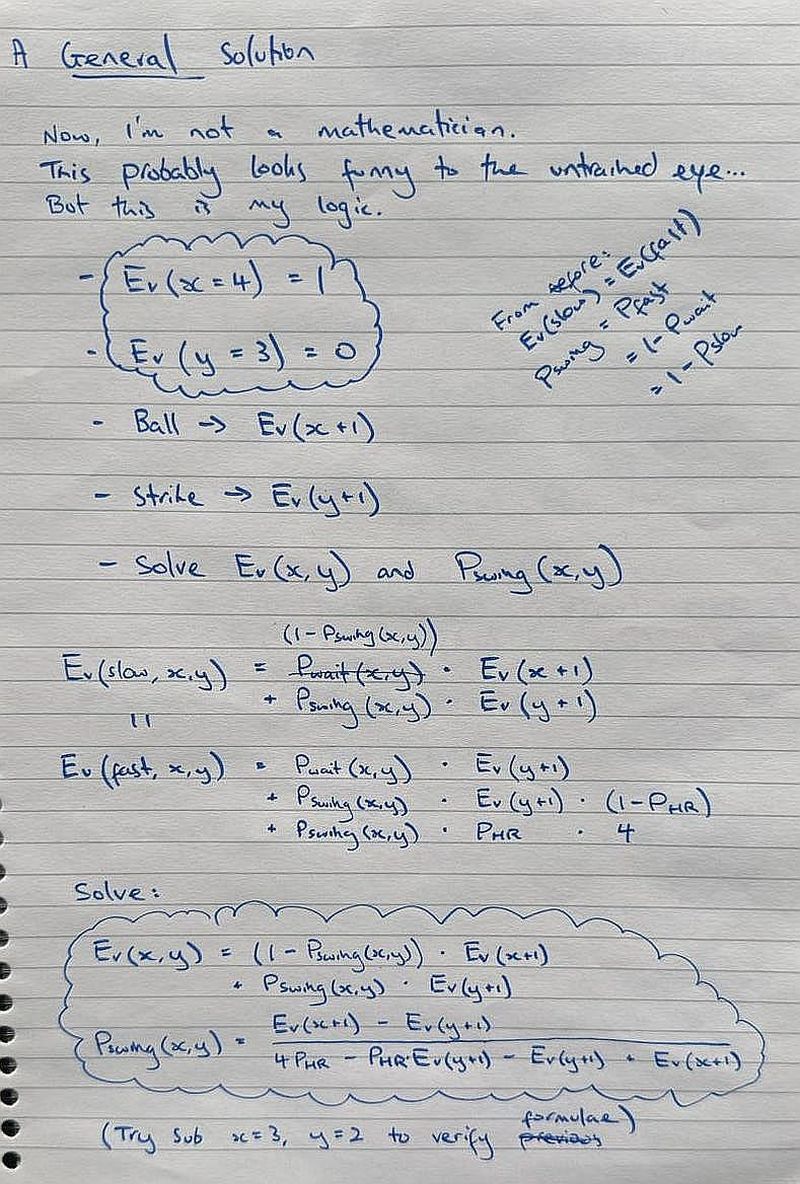 A General Solution
Now, I'm not a mathematician.
This probably looks funny to the untrained eye...
But this is my logic.
- Ev(x=4) = 1
- Ev(y=3) = 0
From before:
Ev(slow) = Ev(fast)
Pswing = Pfast
= 1-Pwait
= 1-Pslow
- Ball → Ev(x+1)
- Strike → Ev(y+1)
- Solve Ev(x,y) and Pswing(x,y)
(1-Pswing(x,y))
Ev(slow,x,y) = Pwait(x,y) · Ev(x+1)
+ Pswing(x,y) · Ev(y+1)
=
Ev(fast,x,y) = Pwait(x,y) · Ev(y+1)
+ Pswing(x,y) · Ev(y+1) · (1-PHR)
+ Pswing(x,y) · PHR · 4
Solve:
Ev(x,y) = (1-Pswing(x,y)) · Ev(x+1)
+ Pswing(x,y) · Ev(y+1)
Pswing(x,y) = Ev(x+1) - Ev(y+1)
4PHR - PHR·Ev(y+1) - Ev(y+1) + Ev(x+1)
formulae)
(Try sub x=3, y=2 to verify previous